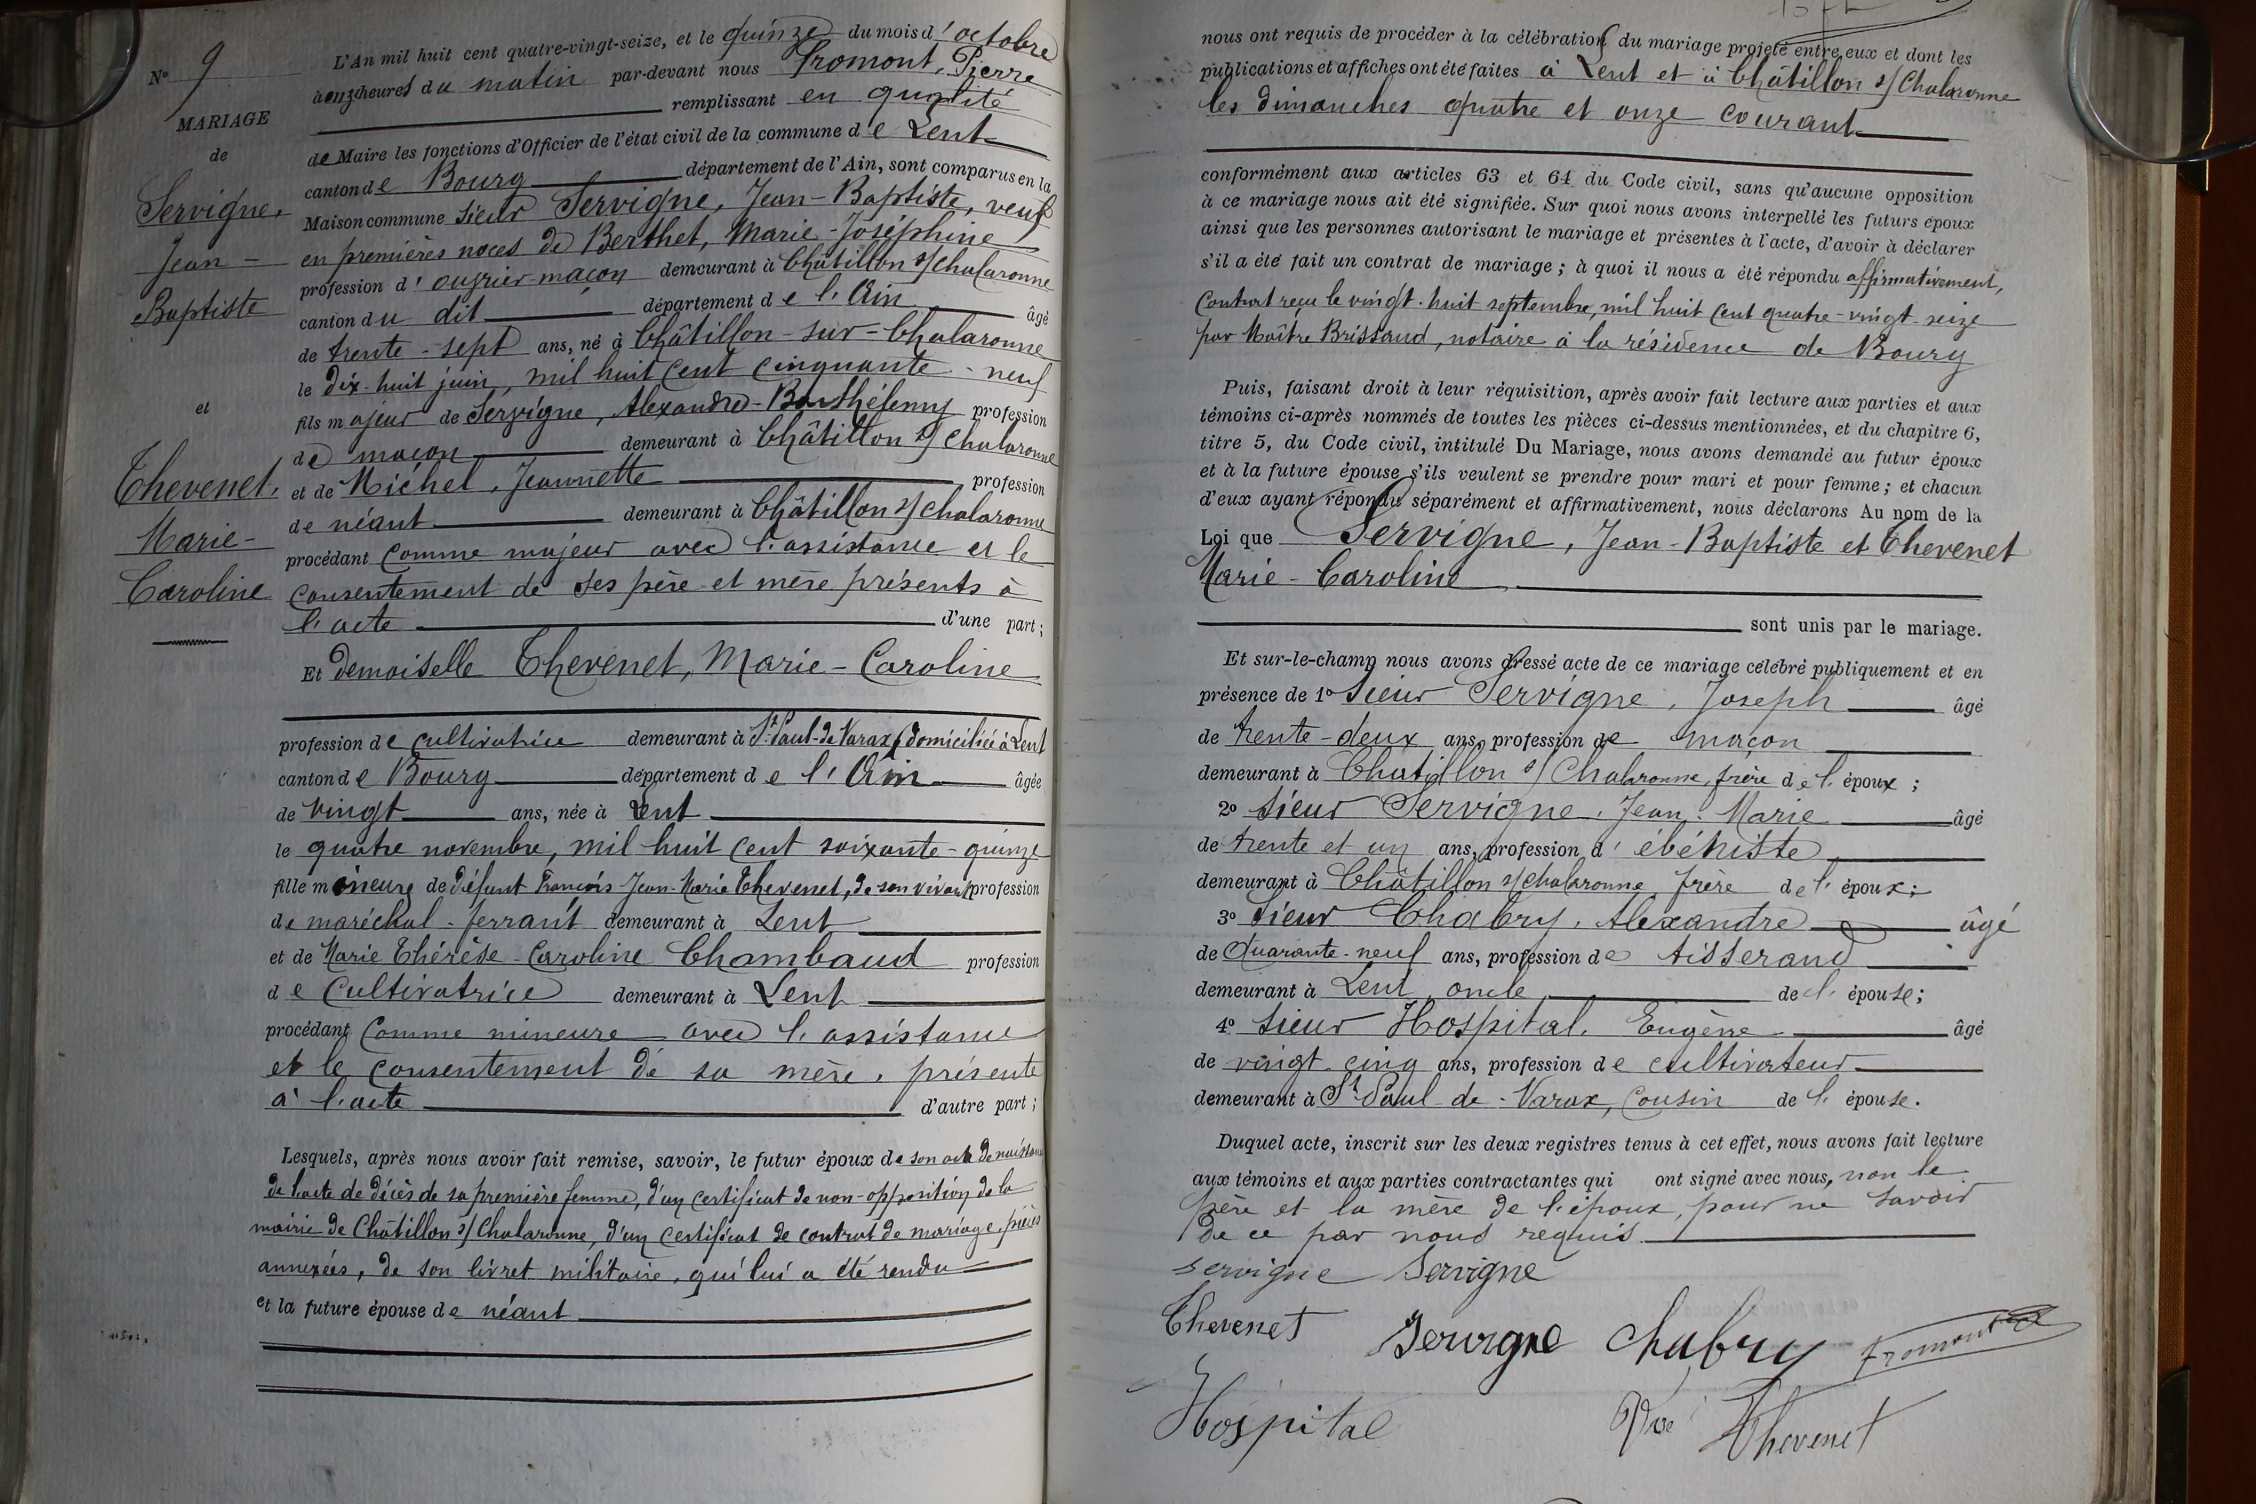 N° 9
MARIAGE
de
Servigne,
Jean -
Baptiste
et
Thevenet,
Marie -
Caroline
L'An mil huit cent quatre-vingt-seize, et le quinze du mois d'octobre
à onze heures du matin par-devant nous Fromont, Pierre
remplissant en qualité
de Maire les fonctions d'Officier de l'état civil de la commune de Lent
canton de Bourg département de l'Ain, sont comparus en la
Maison commune sieur Servigne, Jean-Baptiste, veuf
en premières noces de Berthet, Marie-Joséphine
profession d'ouvrier maçon demeurant à Châtillon s/ Chalaronne
canton du dit département de l'Ain âgé
de trente-sept ans, né à Châtillon-sur-Chalaronne
le dix-huit juin, mil huit cent cinquante-neuf
fils majeur de Servigne, Alexandre-Barthélemy profession
de maçon demeurant à Châtillon s/ Chalaronne
et de Michel, Jeannette profession
de néant demeurant à Châtillon s/ Chalaronne
procédant comme majeur avec l'assistance et le
consentement de ses père et mère présents à
l'acte d'une part;
Et demoiselle Thevenet, Marie-Caroline
profession de cultivatrice demeurant à St-Paul-de-Varax (domiciliée à Lent
canton de Bourg département de l'Ain âgée
de vingt ans, née à Lent
le quatre novembre, mil huit cent soixante-quinze
fille mineure de défunt François Jean-Marie Thevenet, de son vivant profession
de maréchal-ferrant demeurant à Lent
et de Marie Thérèse-Caroline Chambaud profession
de cultivatrice demeurant à Lent
procédant comme mineure avec l'assistance
et le consentement de sa mère, présente
à l'acte d'autre part;
Lesquels, après nous avoir fait remise, savoir, le futur époux de son acte de naissance
de l'acte de décès de sa première femme, d'un certificat de non-opposition de la
mairie de Châtillon s/ Chalaronne, d'un certificat de contrat de mariage, pièces
annexées, de son livret militaire, qui lui a été rendu
et la future épouse de néant
nous ont requis de procéder à la célébration du mariage projeté entre eux et dont les
publications et affiches ont été faites à Lent et à Châtillon s/ Chalaronne
les dimanches quatre et onze courant
conformément aux articles 63 et 64 du Code civil, sans qu'aucune opposition
à ce mariage nous ait été signifiée. Sur quoi nous avons interpellé les futurs époux
ainsi que les personnes autorisant le mariage et présentes à l'acte, d'avoir à déclarer
s'il a été fait un contrat de mariage; à quoi il nous a été répondu affirmativement,
Contrat reçu le vingt-huit septembre, mil huit cent quatre-vingt-seize
par Maître Brissaud, notaire à la résidence de Bourg
Puis, faisant droit à leur réquisition, après avoir fait lecture aux parties et aux
témoins ci-après nommés de toutes les pièces ci-dessus mentionnées, et du chapitre 6,
titre 5, du Code civil, intitulé Du Mariage, nous avons demandé au futur époux
et à la future épouse s'ils veulent se prendre pour mari et pour femme; et chacun
d'eux ayant répondu séparément et affirmativement, nous déclarons Au nom de la
Loi que Servigne, Jean-Baptiste et Thevenet
Marie-Caroline
sont unis par le mariage.
Et sur-le-champ nous avons dressé acte de ce mariage célébré publiquement et en
présence de 1° sieur Servigne, Joseph âgé
de trente-deux ans, profession de maçon
demeurant à Chatillon s/ Chalaronne, frère de l'époux;
2° sieur Servigne, Jean-Marie âgé
de trente et un ans, profession d'ébéniste
demeurant à Châtillon s/ Chalaronne, frère de l'époux;
3° sieur Chabry, Alexandre âgé
de quarante-neuf ans, profession de tisserand
demeurant à Lent, oncle de l'épouse;
4° sieur Hospital, Eugène âgé
de vingt-cinq ans, profession de cultivateur
demeurant à St-Paul-de-Varax, cousin de l'épouse.
Duquel acte, inscrit sur les deux registres tenus à cet effet, nous avons fait lecture
aux témoins et aux parties contractantes qui ont signé avec nous, non le
père et la mère de l'époux, pour ne savoir
de ce par nous requis.
servigne Servigne
Thevenet Servigne Chabry Fromont
Hospital Vve Thevenet